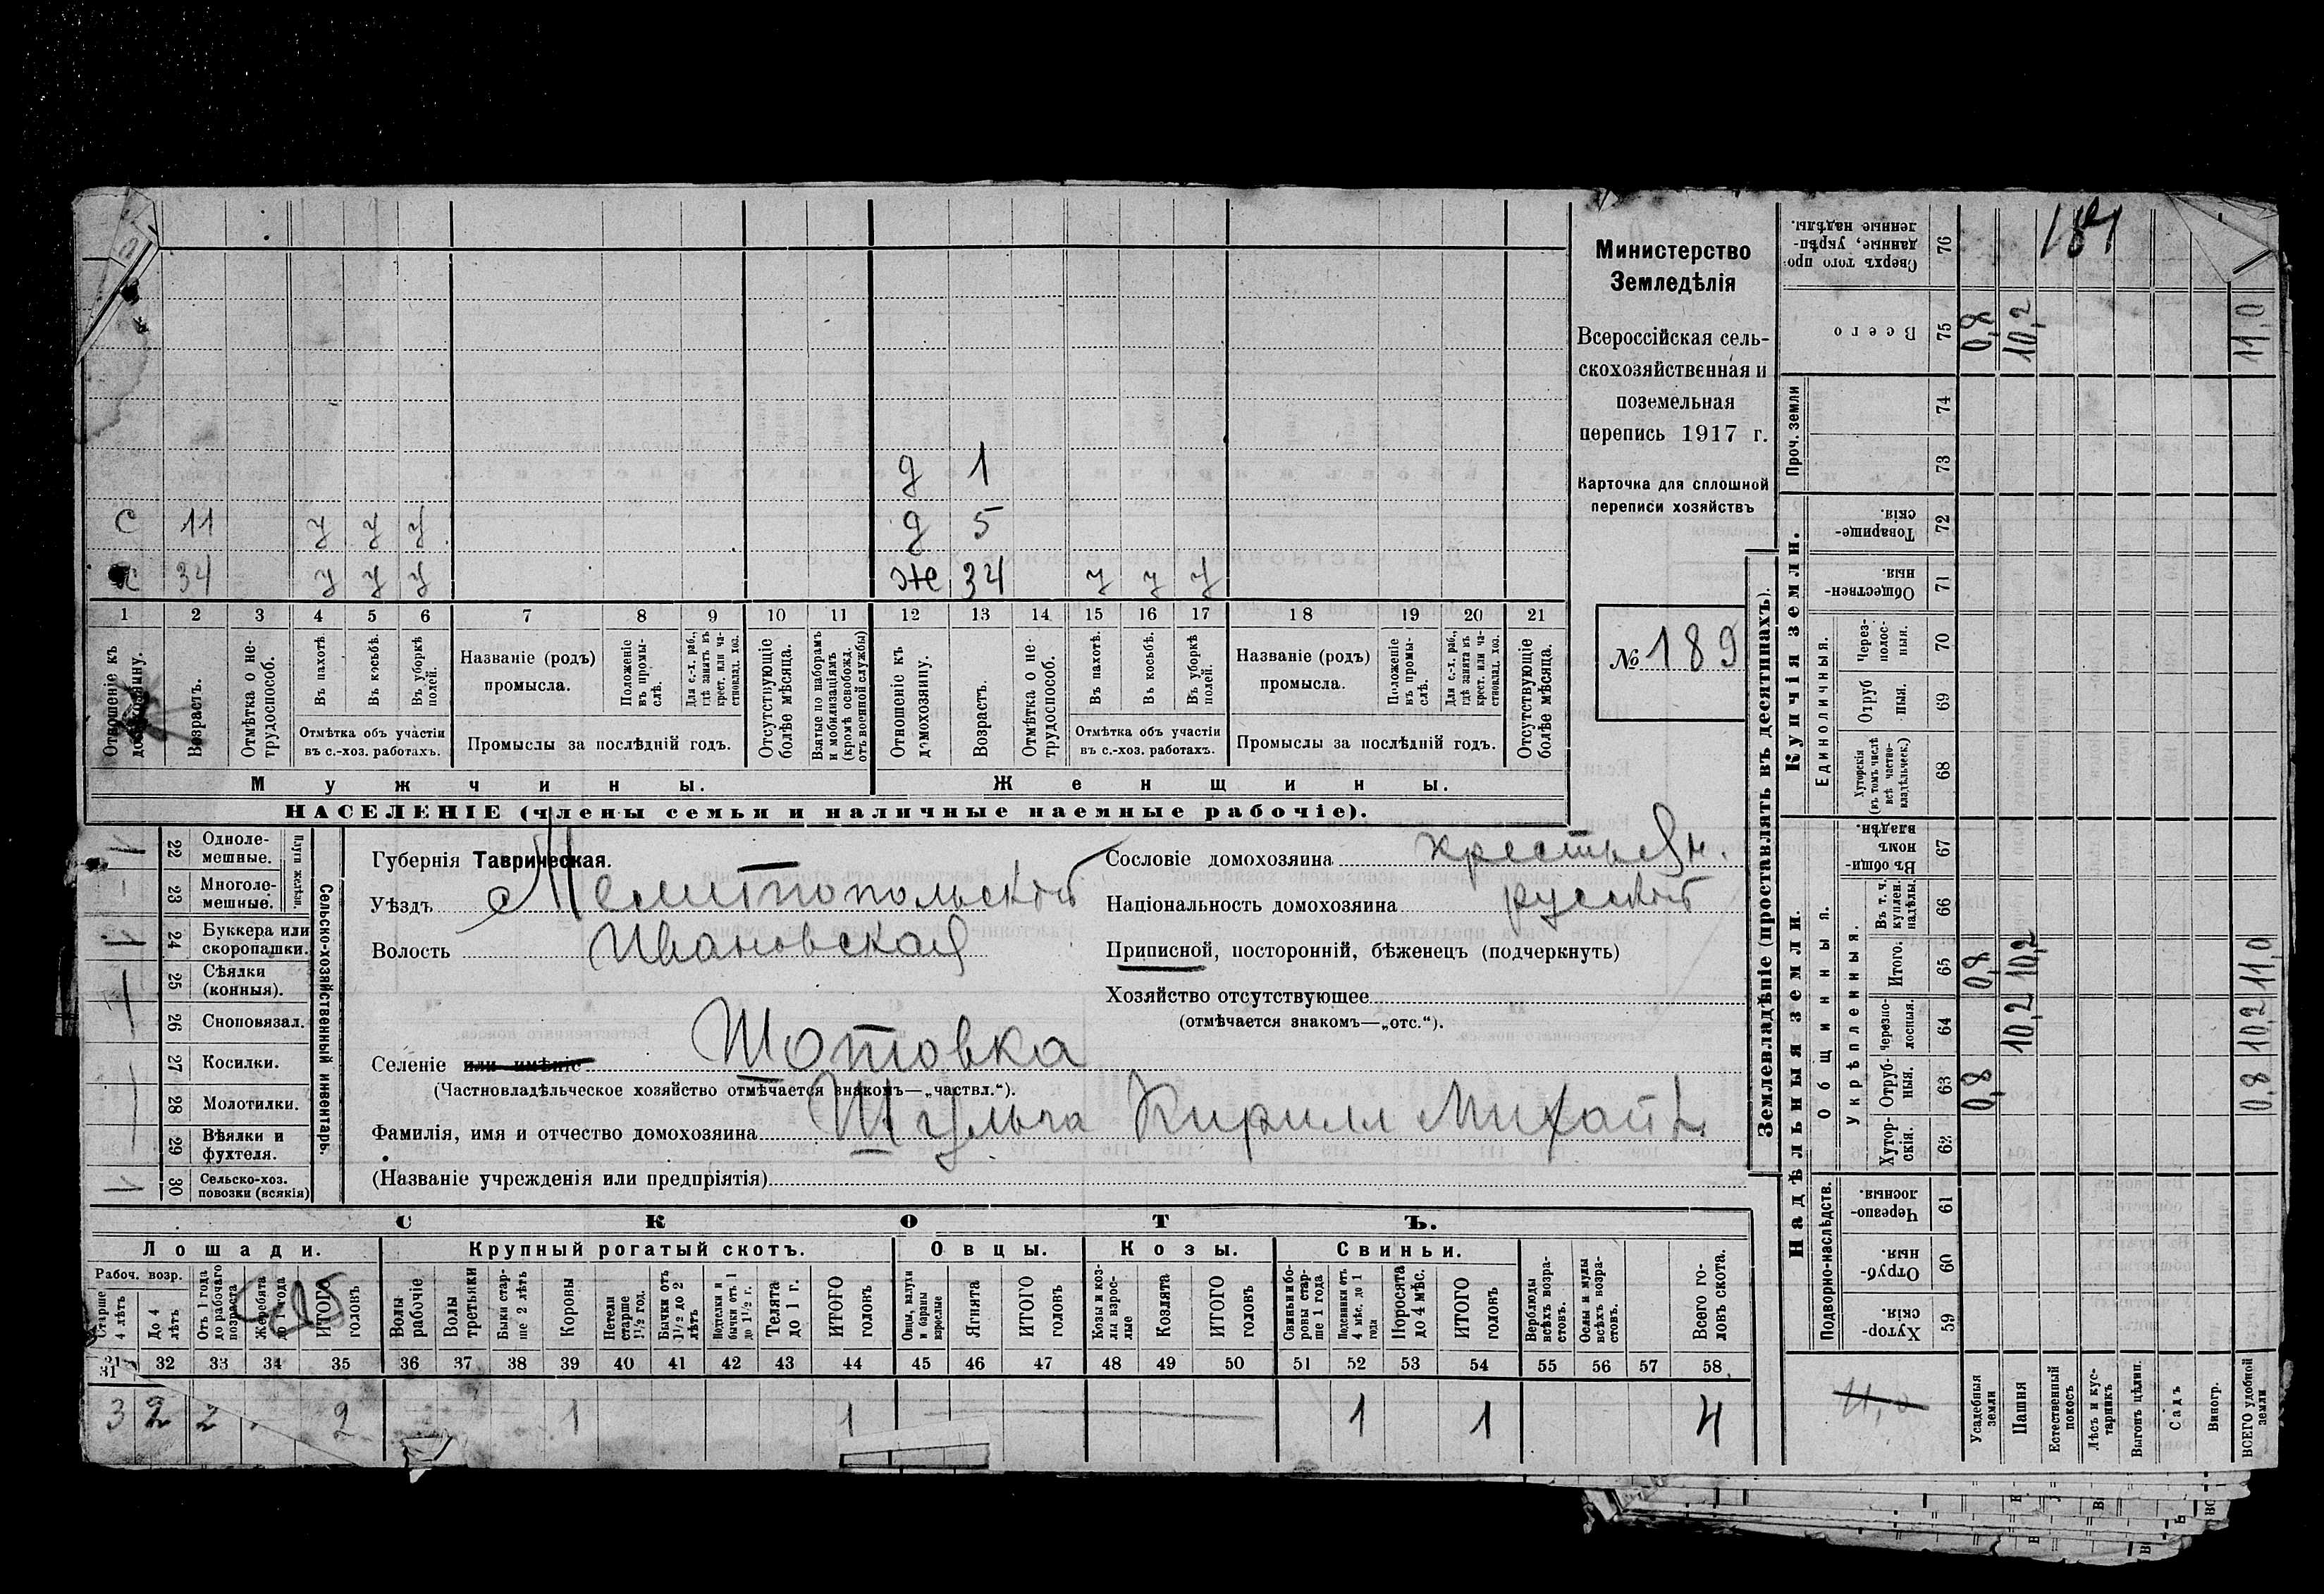 181
Министерство
Земледѣлія
Всероссійская сель-
скохозяйственная и
поземельная
перепись 1917 г.
Карточка для сплошной
переписи хозяйствъ
№ 189
д 1
С 11 у у у д 5
34 у у у же 34 у у у
1 2 3 4 5 6 7 8 9 10 11 12 13 14 15 16 17 18 19 20 21
Отношеніе къ домохозяину.
Возрастъ.
Отмѣтка о не-трудоспособ.
Въ пахотѣ
Въ косьбѣ.
Въ уборкѣ полей.
Отмѣтка объ участіи
въ с.-хоз. работахъ.
Названіе (родъ)
промысла.
Положеніе въ промы-слѣ.
Для с.-х. раб., гдѣ занятъ въ крест. или ча-стновлад. хоз.
Промыслы за послѣдній годъ.
Отсутствующіе болѣе мѣсяца.
Взятые по наборамъ и мобилизаціямъ (кромѣ освобожд. отъ военной службы)
Отношеніе къ домохозяину.
Возрастъ.
Отмѣтка о не-трудоспособ.
Въ пахотѣ.
Въ косьбѣ.
Въ уборкѣ полей.
Отмѣтка объ участіи
въ с.-хоз. работахъ.
Названіе (родъ)
промысла.
Положеніе въ промы-слѣ.
Для с.-х. раб., гдѣ занята въ крест. или ча-стновлад. хоз.
Промыслы за послѣдній годъ.
Отсутствующіе болѣе мѣсяца.
Мужчины. Женщины.
НАСЕЛЕНІЕ (члены семьи и наличные наемные рабочіе).
Сельско-хозяйственный инвентарь.
Плуги желѣзн.
22 Одноле-мешные.
23 Многоле-мешные.
24 Буккера или скоропашки.
25 Сѣялки (конныя).
26 Сноповязал.
27 Косилки.
28 Молотилки.
29 Вѣялки и фухтеля.
30 Сельско-хоз. повозки (всякія)
Губернія Таврическая.
Уѣздъ Мелитопольскій
Волость Ивановская
Селеніе или имѣніе Шотовка
(Частновладѣльческое хозяйство отмѣчается знакомъ—„частвл.“).
Фамилія, имя и отчество домохозяина Шульга Кирилл Михайл
(Названіе учрежденія или предпріятія)
Сословіе домохозяина крестьян.
Національность домохозяина русскій
Приписной, посторонній, бѣженецъ (подчеркнуть)
Хозяйство отсутствующее
(отмѣчается знакомъ—„отс.“).
СКОТЪ.
Лошади. Крупный рогатый скотъ. Овцы. Козы. Свиньи.
Рабоч. возр.
Старше 4 лѣтъ
До 4 лѣтъ
Отъ 1 года до рабочаго возраста
Жеребята до 1 года
ИТОГО головъ
Волы рабочіе
Волы третьяки
Быки стар-ше 2 лѣтъ
Коровы
Нетели старше 1½ год.
Бычки отъ 1½ до 2 лѣтъ
Подтелки и бычки отъ 1 до 1½ г.
Телята до 1 г.
ИТОГО головъ
Овцы, валухи и бараны взрослые
Ягнята
ИТОГО головъ
Козы и коз-лы взрос-лые
Козлята
ИТОГО головъ
Свиньи и бо-ровы стар-ше 1 года
Подсвинки отъ 4 мѣс. до 1 года
Поросята до 4 мѣс.
ИТОГО головъ
Верблюды всѣхъ возра-стовъ.
Ослы и мулы всѣхъ возра-стовъ.
Всего го-ловъ скота.
31 32 33 34 35 36 37 38 39 40 41 42 43 44 45 46 47 48 49 50 51 52 53 54 55 56 57 58
31
3 2 2 2 1 1 1 1 4
Землевладѣніе (проставлять въ десятинахъ).
Купчія земли.
Надѣльныя земли.
Сверхъ того про-данные, укрѣп-ленные надѣлы. 76
Всего 75 0,8 10,2 11,0
Проч. земли 74 73
Товарище-скія. 72
Обществен-ныя. 71
Единоличныя.
Через-полос-ныя. 70
Отруб ныя. 69
Хуторскія (въ томъ числѣ всѣ частно-владѣльческ.) 68
Общинныя.
Въ общи-номъ владѣн. 67
Укрѣпленныя.
Въ т. ч. куплен. надѣлы. 66
Итого. 65 0,8 10,2 11,0
Черезпо-лосныя. 64 10,2 10,2
Отруб-ныя. 63 0,8 0,8
Хутор-скія. 62
Подворно-наслѣдств.
Черезпо-лосныя. 61
Отруб-ныя. 60
Хутор-скія. 59
Усадебныя земли
Пашня
Естественный покосъ
Лѣсъ и кус-тарникъ
Выгонъ цѣлин.
Садъ
Виногр.
ВСЕГО удобной земли